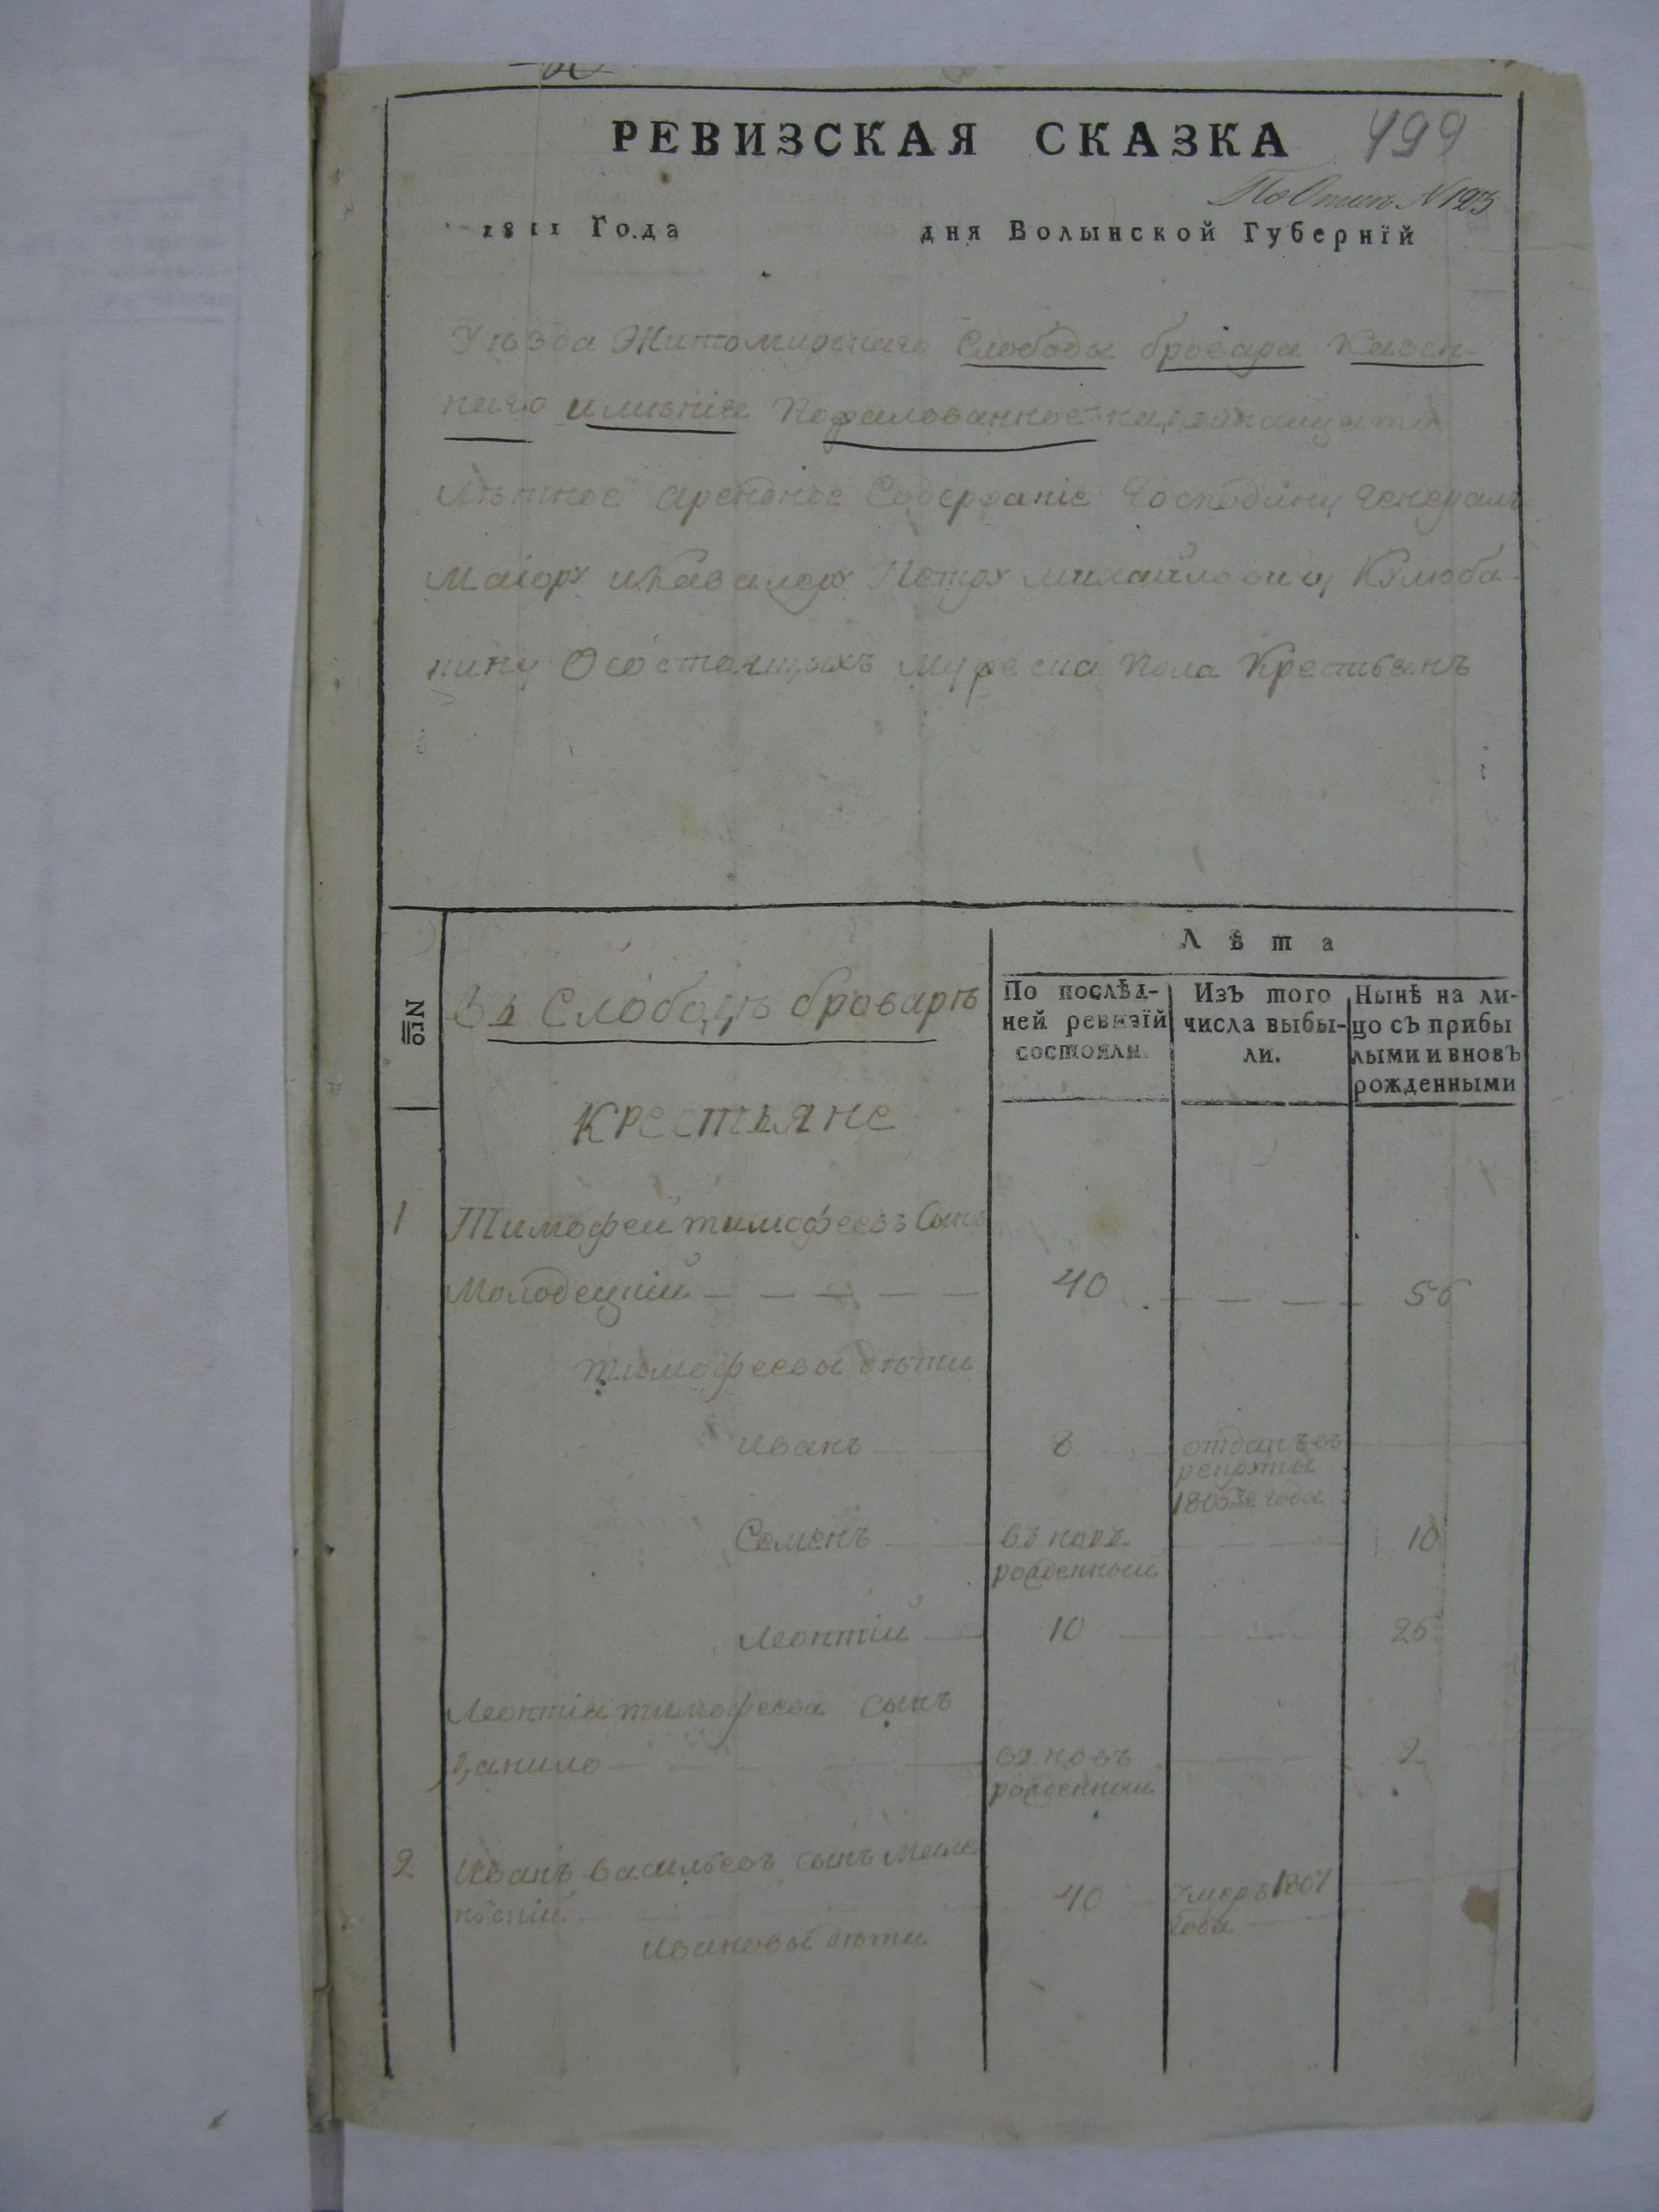 РЕВИЗСКАЯ СКАЗКА 499
По Описи N 123
1811 Года дня Волынской Губернїй
Уѣзда Житомирскаго Слободы бровара Казен-
наго имѣнія Пожалованное на
лѣтное арендное Содержаніе Господину Генералъ
Маіору и Кавалеру Петру михайловичу Кулюба-
кину О состоящихъ мужеска пола Крестьянъ
Nro
Въ Слободѣ броварѣ
Лѣта
По послѣд-
ней ревизїй
состояли.
Изъ того
числа выбы-
ли.
Нынѣ на ли-
цо съ прибы
лыми и вновъ
рожденными
крестьяне
1 Тимофей тимофеевъ Сынъ
Молодецкій 40 56
тимофеевы дѣти
Иванъ 8 отданъ въ
рекруты
1806го года
Семенъ въ новъ 10
рожденный
Леонтій 10 26
Леонтія тимофеева сынъ
Данило въ новъ 2
рожденный
2 Иванъ васильевъ сынъ
40 Умеръ 1807
года
Ивановы дѣти